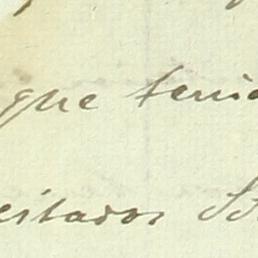 que tenia
eitados